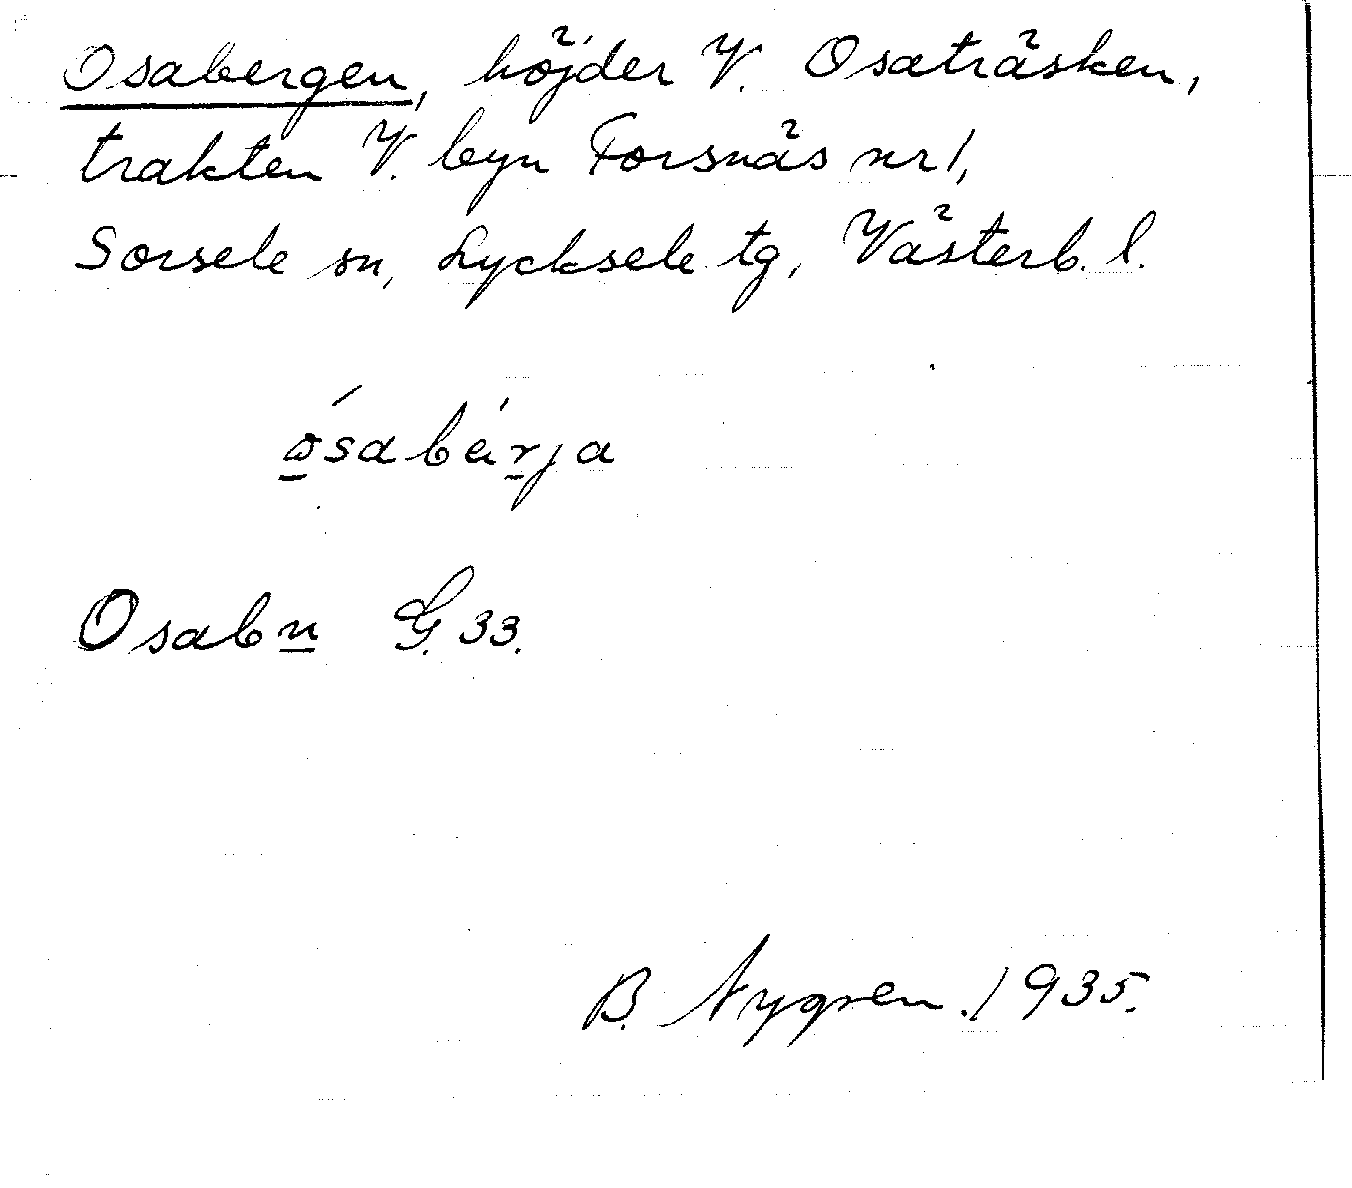 Osabergen, höjder V. Osaträsken,
trakten V. byn Forsnäs nr 1,
Sorsele sn, Lycksele tg, Västerb. l.
ósabárja
Osabn G. 33.
B. Nygren. 1935.